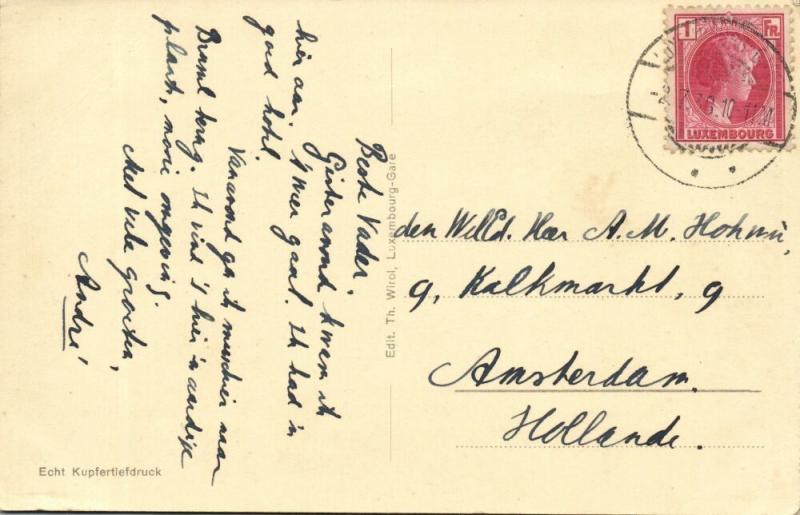 Beste Vader,
Gisteravond kwam ik
hier aan, 4 uur gaat. Ik had 'n
goed hotel.
Vanavond ga ik misschien naar
Brussel terug. Ik vind 't hier 'n aardige
plaats, mooie omgeving.
Met vele groeten,
André
Edit. Th. Wirol, Luxembourg-Gare
Echt Kupfertiefdruck
1 FR.
LUXEMBOURG
den WelEd. Heer A. M.
9, Kalkmarkt, 9
Amsterdam.
Hollande.